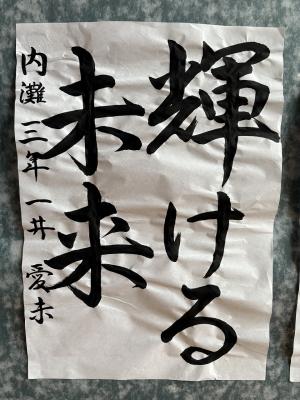 輝ける
未来
内灘 三年 一井 愛未